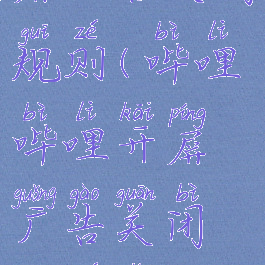 guī zé bì lǐ
规则(哔哩
bì lǐ kāi píng
哔哩开屏
guǎng gào guān bì
广告关闭